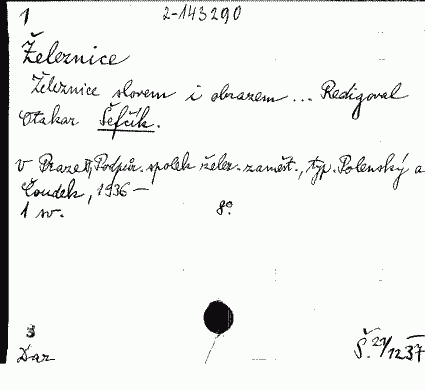 1 2-143290
Železnice
Železnice slovem i obrazem ... Redigoval
Otakar Šefčík.
V Praze II, Podpůr. spolek želez. zaměst., typ. Polenský a
Čoudek, 1936 —
1 sv. 8°
3
Dar Š. 29/12 37